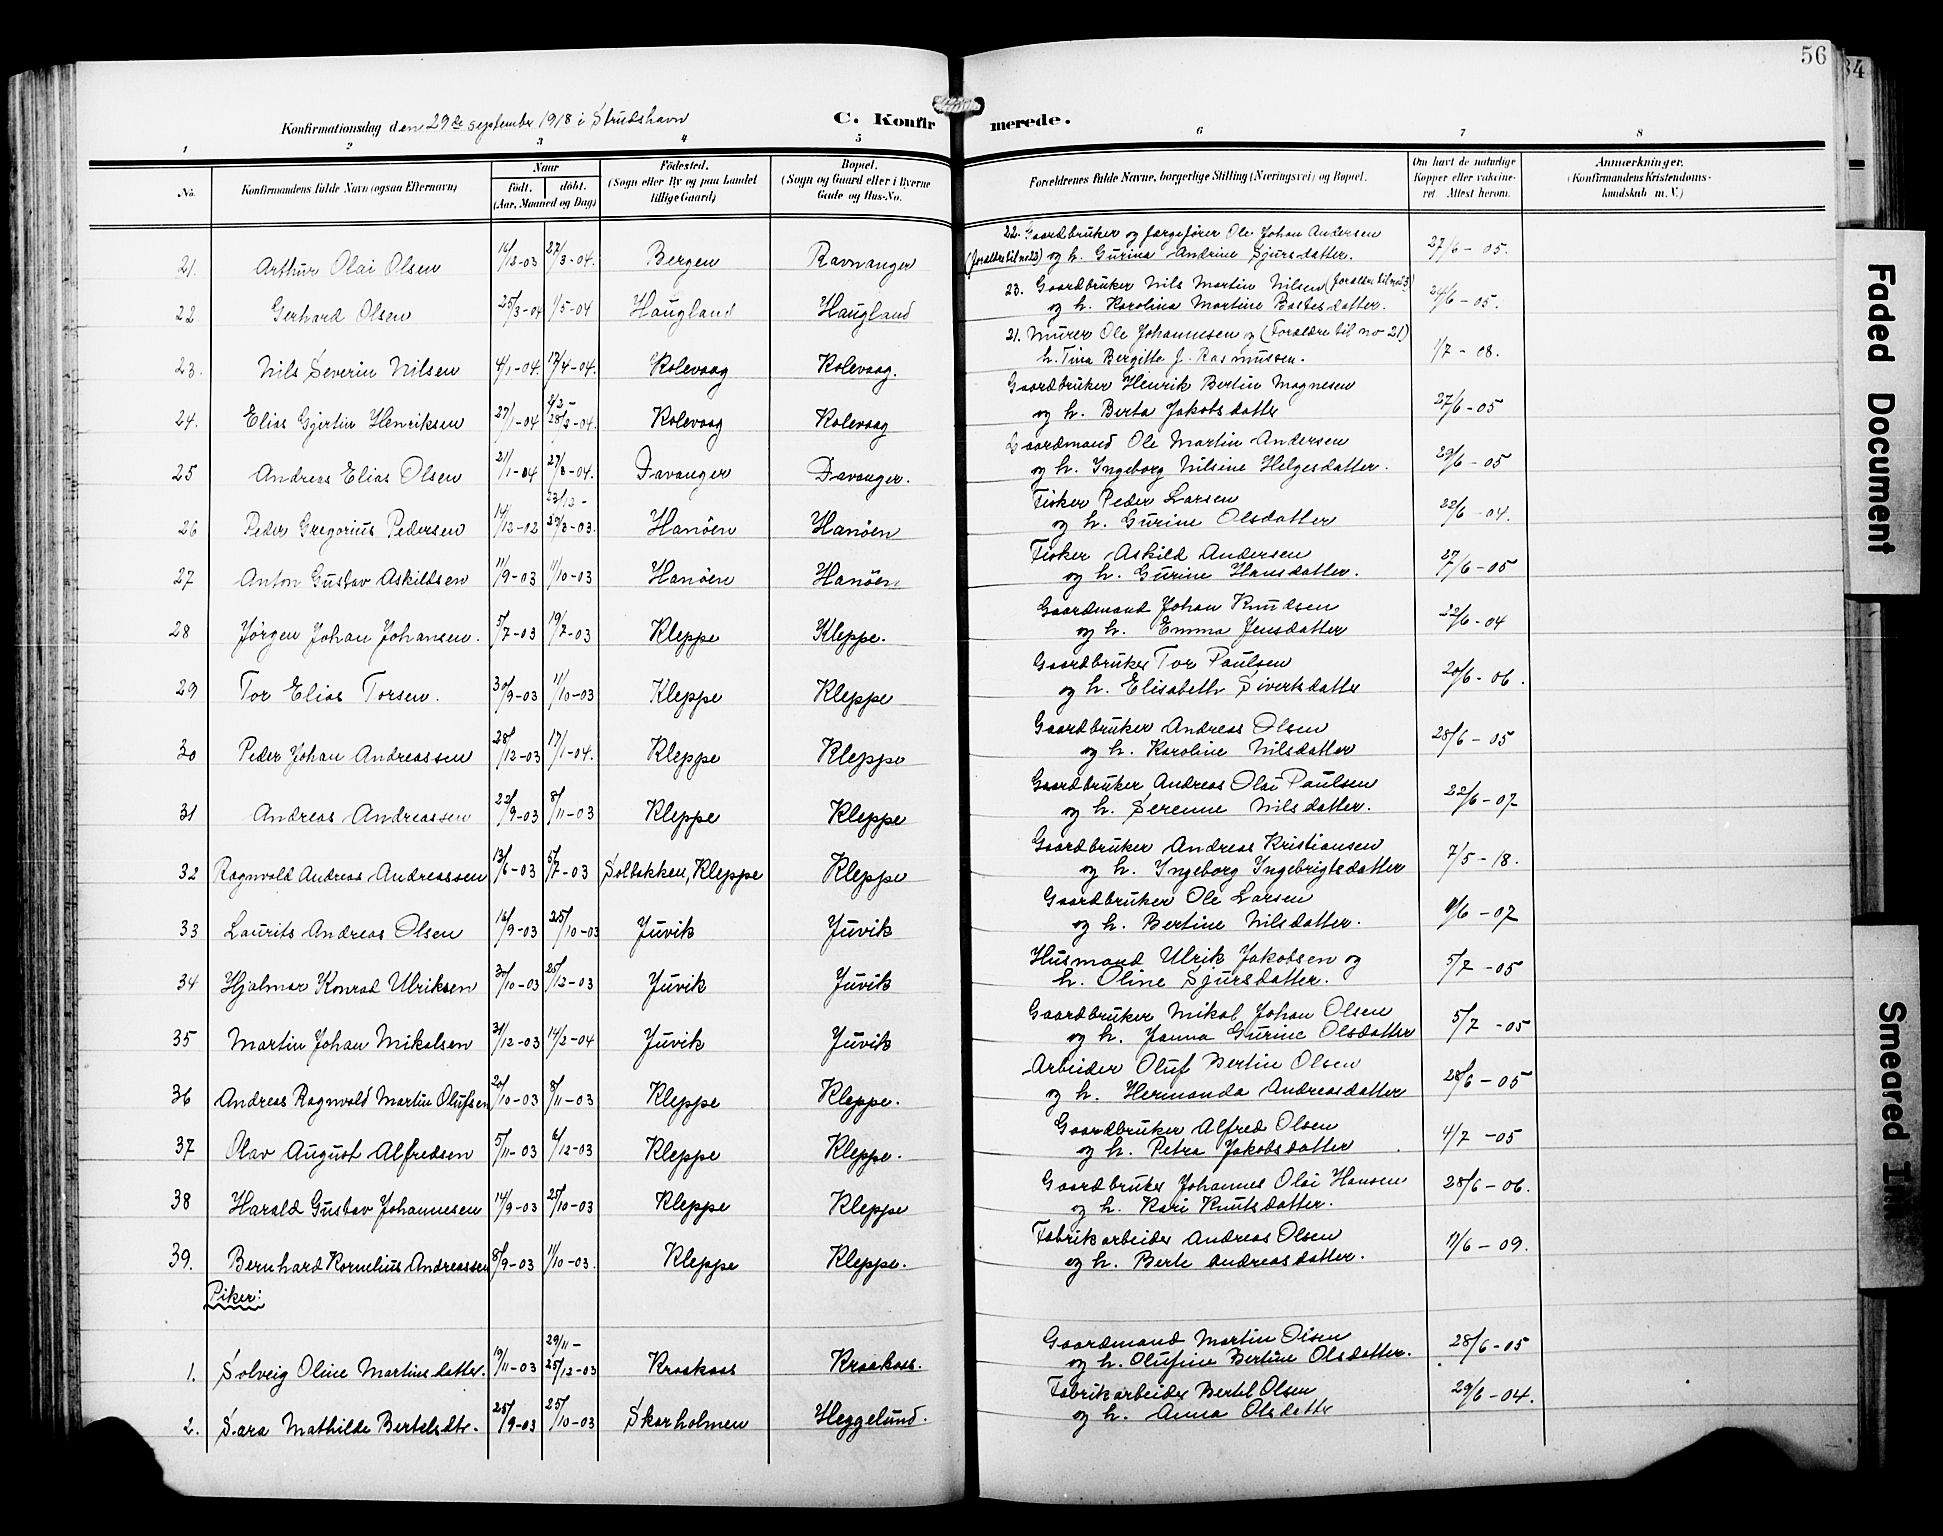 56
34
Konfirmationsdag den 29de september 1918 i Strudshavn
C. Konfirmerede.
1 2 3 4 5 6 7 8
No. Konfirmandens fulde Navn (ogsaa Efternavn) Naar født. døbt. (Aar, Maaned og Dag) Fødested. (Sogn eller By og paa Landet tillige Gaard) Bopæl. (Sogn og Gaard eller i Byerne Gade og Hus-No. Forældrenes fulde Navne, borgerlige Stilling (Næringsvei) og Bopæl. Om havt de naturlige Kopper eller vaccineret. Attest herom. Anmærkninger. (Konfirmandens Kristendomskundskab m. V.)
21. Arthur Olai Olsen 16/12-03 27/3-04. Bergen Ravnanger 22. Gaardbruker og færgefører Ole Johan Andersen
(forældre til no 22) og h. Gurina Andrine Sjursdatter. 27/6-05.
22 Gerhard Olsen 25/3-04 1/5-04 Haugland Haugland 23. Gaardbruker Nils Martin Nilsen (forældre til no 23)
og h. Karolina Martine Bastesdatter. 24/6-05.
23. Nils Severin Nilsen 4/1-04. 17/4-04. Kolevaag Kolevaag. 21. Murer Ole Johannesen og (Forældre til no 21)
h. Tina Bergitte J. Rasmussen. 1/7-08.
24. Elias Gjertin Henriksen 27/1-04 2/2- 28/2-04. Kolevaag Kolevaag Gaardbruker Henrik Bertin Magnesen
og h. Berta Jakobsdatter 27/6-05
25 Andreas Elias Olsen 21/1-04 27/3-04. Davanger Davanger. Gaardmand Ole Martin Andersen
og h. Ingeborg Nilsine Helgesdatter. 29/6-05
26 Peder Gregorius Pedersen 14/12-02 23/12- 29/3-03. Hanöen Hanöen Fisker Peder Larsen
og h. Gurine Olsdatter 22/6-04.
27 Anton Gustav Askildsen 11/9-03 11/10-03 Hanöen Hanöen Fisker Askild Andersen
og h. Gurine Hansdatter. 27/6-05
28 Jørgen Johan Johansen. 5/7-03 19/7-03 Kleppe Kleppe. Gaardmand Johan Knudsen
og h. Emma Jensdatter 22/6-04
29 Tor Elias Torsen. 30/9-03 11/10-03 Kleppe Kleppe Gaardbruker Tor Paulsen
og h. Elisabeth Sivertsdatter 20/6-06.
30 Peder Johan Andreassen 28/12-03 17/1-04. Kleppe Kleppe Gaardbruker Andreas Olsen
og h. Karoline Nilsdatter 28/6-05
31 Andreas Andreassen 22/9-03 8/11-03 Kleppe Kleppe Gaardbruker Andreas Olai Paulsen
og h. Serenne Nilsdatter. 22/6-07
32 Ragnvald Andreas Andreassen 13/6-03 5/7-03 Solbakken, Kleppe Kleppe Gaardbruker Andreas Kristiansen
og h. Ingeborg Ingebrigtsdatter 7/5-18.
33 Laurits Andreas Olsen 16/9-03 25/10-03 Juvik Juvik Gaardbruker Ole Larsen
og h. Bertine Nilsdatter. 11/6-07
34 Hjalmar Konrad Ulriksen 30/10-03 25/12-03 Juvik Juvik Husmand Ulrik Jakobsen og
h. Oline Sjursdatter. 5/7-05
35 Martin Johan Mikalsen 31/12-03 14/2-04 Juvik Juvik Gaardbruker Mikal Johan Olsen
og h. Janna Gurine Olsdatter 5/7-05
36 Andreas Ragnvald Martin Olufsen 20/10-03 8/11-03 Kleppe Kleppe. Arbeider Oluf Bertin Olsen
og h. Hermanda Andreasdatter 28/6-05
37 Olav August Alfredsen 5/11-03 6/12-03 Kleppe Kleppe. Gaardbruker Alfred Olsen
og h. Petra Jakobsdatter 4/7-05
38 Harald Gustav Johannesen 14/9-03 25/10-03 Kleppe Kleppe Gaardbruker Johannes Olai Hansen
og h. Kari Knutsdatter. 28/6-06.
39. Bernhard Kornelius Andreassen 8/9-03 11/10-03. Kleppe Kleppe. Fabrikarbeider Andreas Olsen
og h. Berte Andreasdatter. 11/6-09.
Piker:
1. Solveig Oline Martinsdatter. 19/11-03 29/11- 25/12-03 Kraakaas Kraakaas. Gaardmand Martin Olsen
og h. Olufine Bertine Olsdatter. 28/6-05
2. Sara Mathilde Bertelsdtr. 25/9-03 25/10-03 Skarholmen Heggelund. Fabrikarbeider Bertel Olsen
og h. Anna Olsdattr 29/6-04.
Faded Document
Smeared Ink